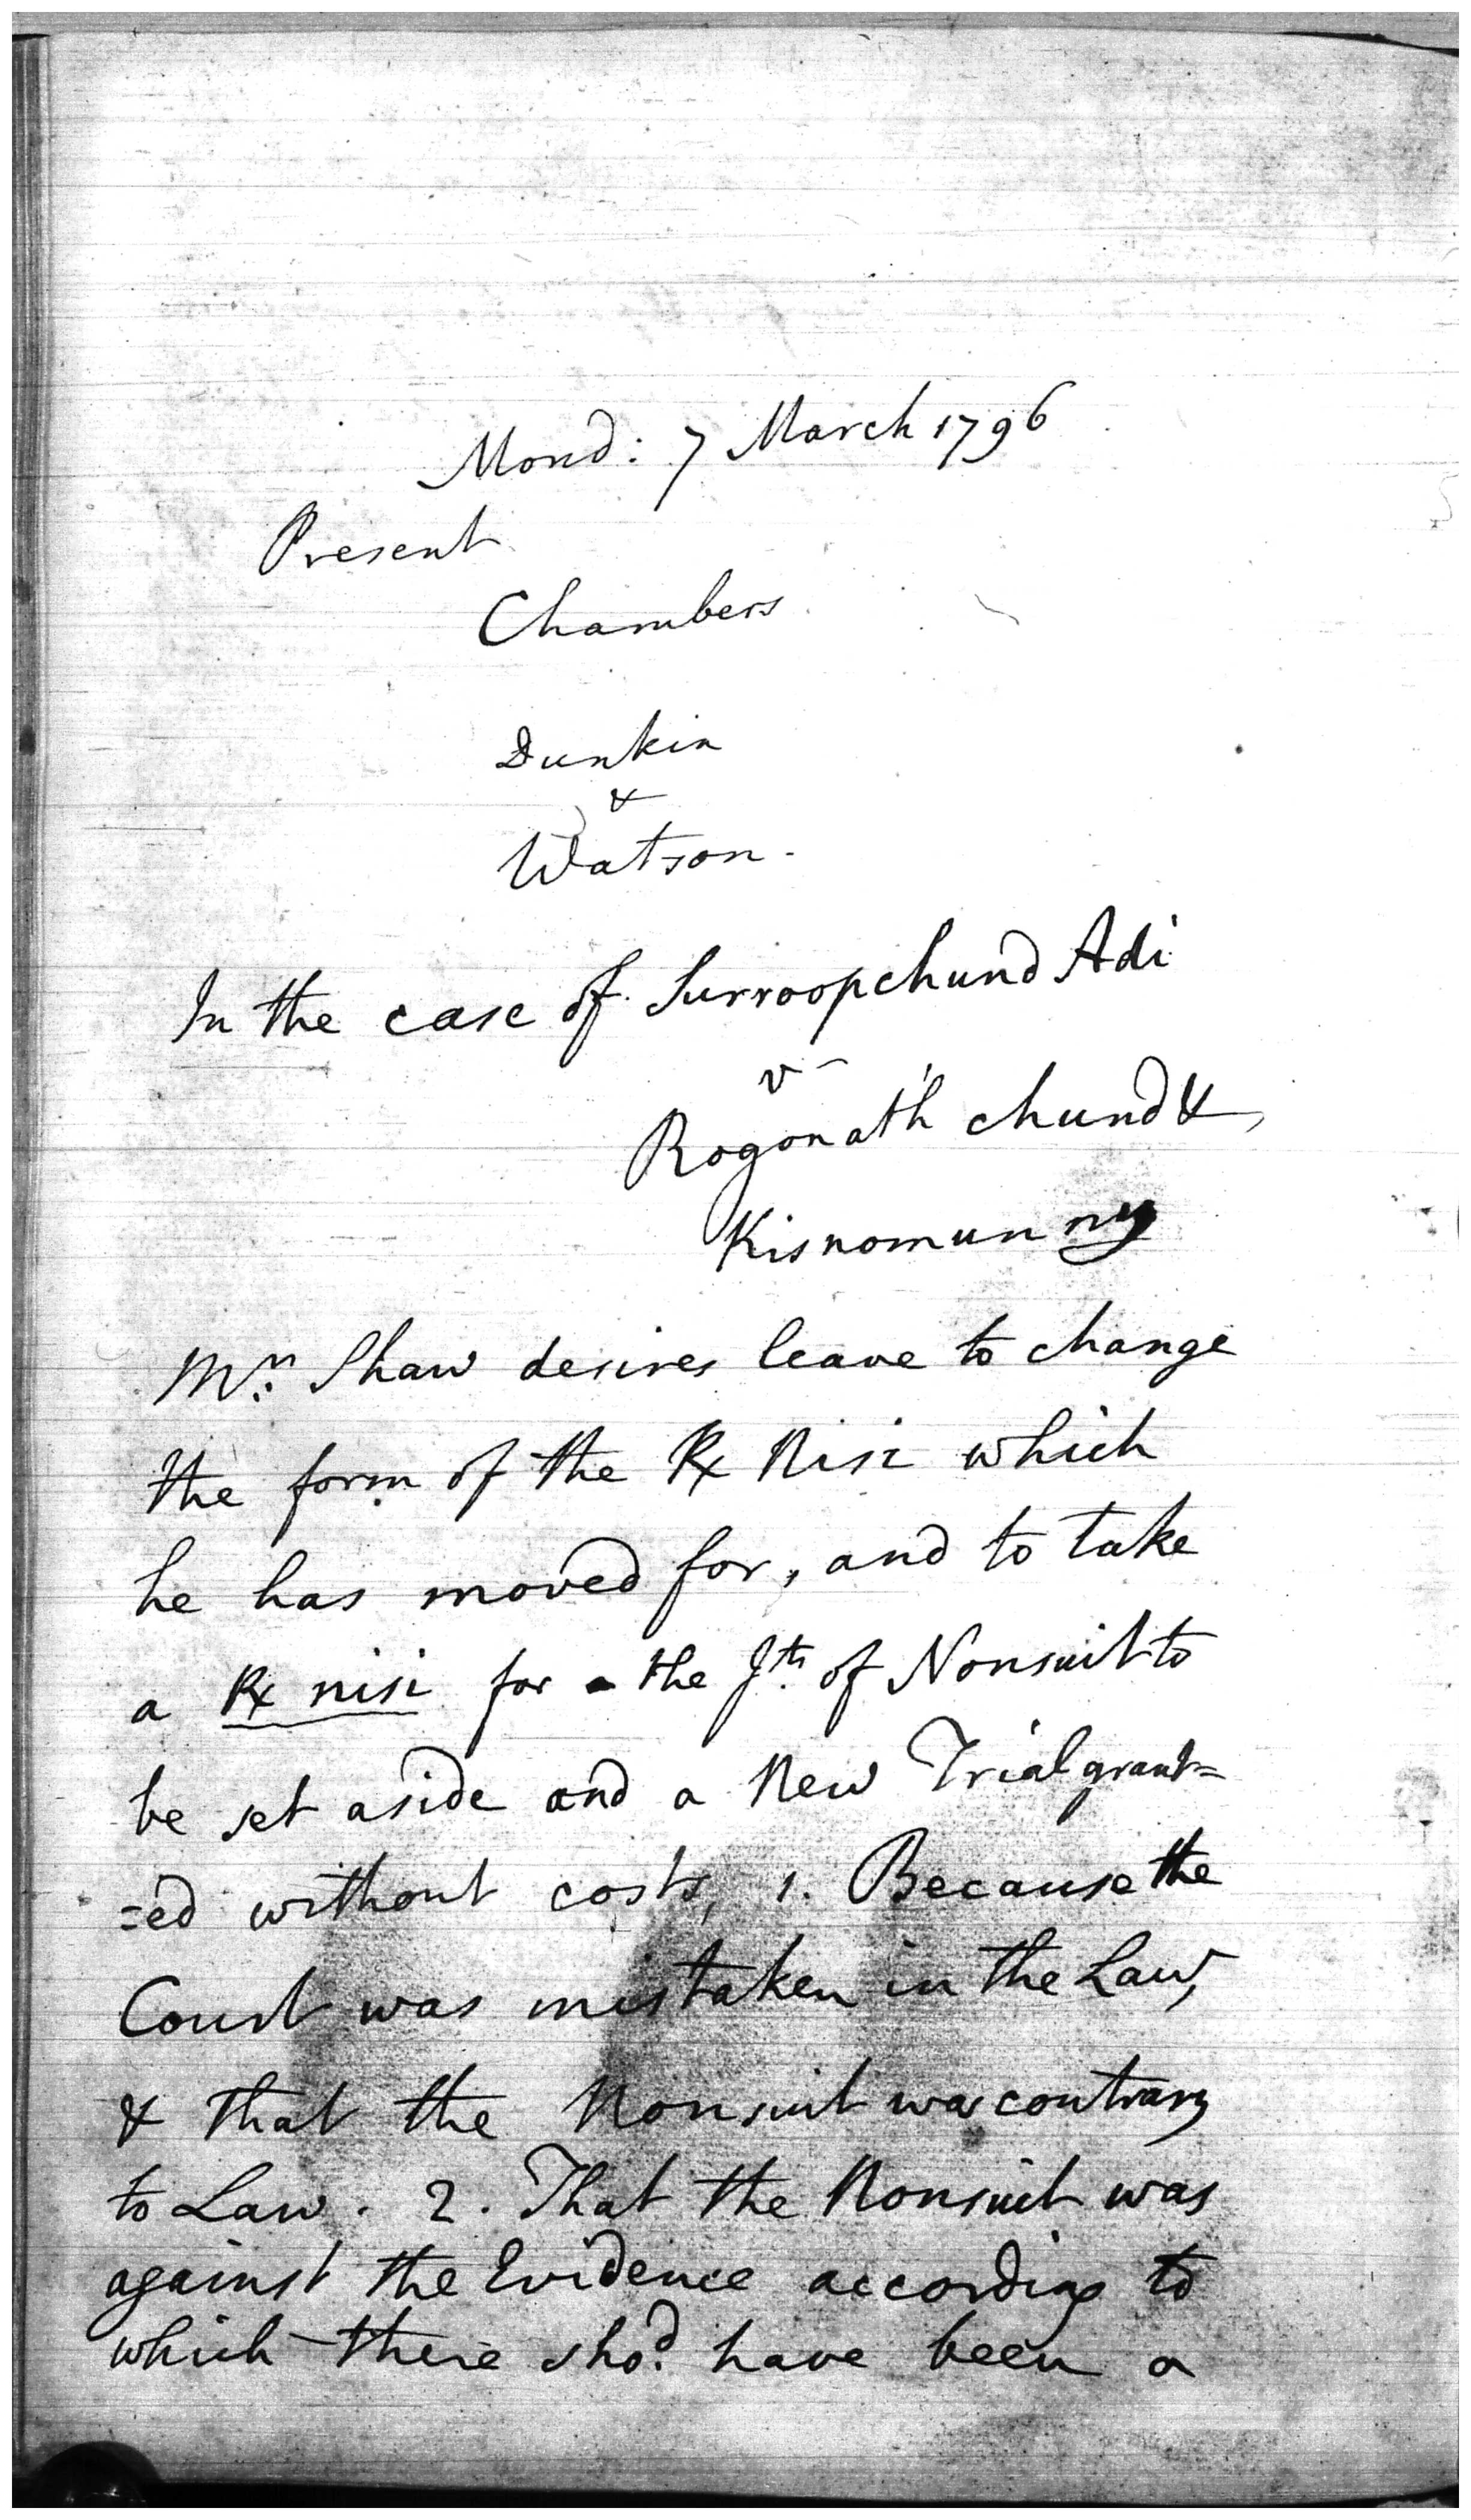 Mond: 7 March 1796
Present
Chambers
Dunkin
&
Watson -
In the case of Surroopchund Adi
v -
Rogonath chund &
Kisnomunny
Mr. Shaw desires leave to change
the form of the Rx Nisi which
he has moved for, and to take
a Rx nisi for the Jt. of Nonsuit to
be set aside and a New Trial grant=
=ed without costs, 1. Because the
Court was mistaken in the Law,
& that the Nonsuit was contrary
to Law. 2. That the Nonsuit was
against the Evidence according to
which there shod. have been a